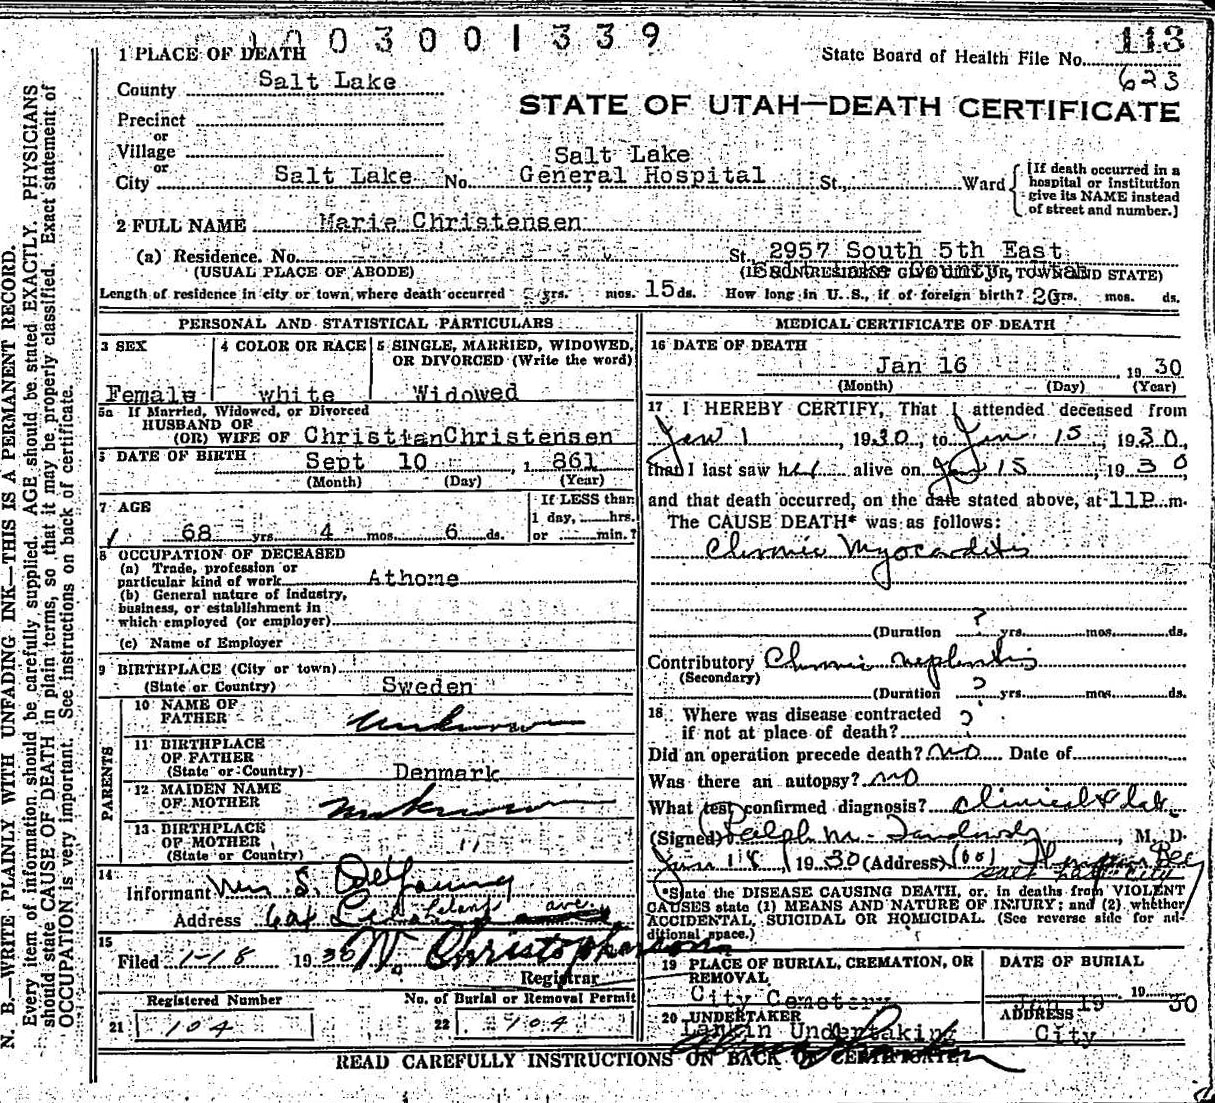 1003001339
1 PLACE OF DEATH
State Board of Health File No. 113
623
County Salt Lake
STATE OF UTAH—DEATH CERTIFICATE
Precinct
or
Village
or
City Salt Lake No. Salt Lake General Hospital St., Ward
[If death occurred in a hospital or institution give its NAME instead of street and number.]
2 FULL NAME Marie Christensen
(a) Residence. No. St. 2957 South 5th East
(USUAL PLACE OF ABODE) (IF NONRESIDENT GIVE CITY, TOWN AND STATE)
Salt Lake County, Utah
Length of residence in city or town, where death occurred yrs. mos. 15 ds. How long in U. S., if of foreign birth? yrs. mos. ds.
PERSONAL AND STATISTICAL PARTICULARS
3 SEX
Female
4 COLOR OR RACE
white
5 SINGLE, MARRIED, WIDOWED, OR DIVORCED (Write the word)
Widowed
5a If Married, Widowed, or Divorced
HUSBAND OF
(OR) WIFE OF Christian Christensen
DATE OF BIRTH Sept 10, 1861
(Month) (Day) (Year)
7 AGE
68 yrs. 4 mos. 6 ds.
If LESS than
1 day, hrs.
or min.?
8 OCCUPATION OF DECEASED
(a) Trade, profession or
particular kind of work Athome
(b) General nature of industry,
business, or establishment in
which employed (or employer)
(c) Name of Employer
9 BIRTHPLACE (City or town)
(State or Country) Sweden
PARENTS
10 NAME OF
FATHER Unknown
11 BIRTHPLACE
OF FATHER
(State or Country) Denmark
12 MAIDEN NAME
OF MOTHER Unknown
13 BIRTHPLACE
OF MOTHER
(State or Country) "
14
Informant Mrs S.
Address Leland ave.
15
Filed 1-18 1930 Christopherson
Registrar
Registered Number
21 104
No. of Burial or Removal Permit
22 104
MEDICAL CERTIFICATE OF DEATH
16 DATE OF DEATH
Jan 16, 1930
(Month) (Day) (Year)
17 I HEREBY CERTIFY, That I attended deceased from
Jan 1, 1930, to Jan. 15, 1930,
that I last saw her alive on Jan 15, 1930
and that death occurred, on the date stated above, at 11P m.
The CAUSE DEATH* was as follows:
Chronic Myocarditis
(Duration ? yrs. mos. ds.
Contributory Chronic nephritis
(Secondary)
(Duration ? yrs. mos. ds.
18 Where was disease contracted
if not at place of death? ?
Did an operation precede death? no Date of
Was there an autopsy? no
What test confirmed diagnosis? Clinical & lab
(Signed) Ralph M. M. D.
Jan 18, 1930 (Address) Salt Lake City
*State the DISEASE CAUSING DEATH, or, in deaths from VIOLENT
CAUSES state (1) MEANS AND NATURE OF INJURY; and (2) whether
ACCIDENTAL, SUICIDAL OR HOMICIDAL. (See reverse side for additional space.)
19 PLACE OF BURIAL, CREMATION, OR REMOVAL
City Cemetery
DATE OF BURIAL
Jan 19 1930
20 UNDERTAKER
Larkin Undertaking
ADDRESS
City
READ CAREFULLY INSTRUCTIONS ON BACK OF CERTIFICATE
N. B.—WRITE PLAINLY WITH UNFADING INK—THIS IS A PERMANENT RECORD.
Every item of information should be carefully supplied. AGE should be stated EXACTLY. PHYSICIANS
should state CAUSE OF DEATH in plain terms, so that it may be properly classified. Exact statement of
OCCUPATION is very important. See instructions on back of certificate.